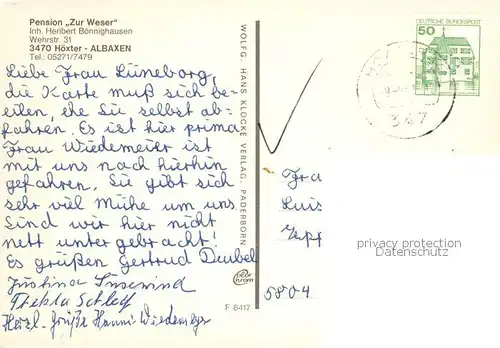 Pension „Zur Weser"
Inh. Heribert Bönnighausen
Wehrstr. 31
3470 Höxter - ALBAXEN
Tel.: 05271/7479
Liebe Frau Lüneborg,
die Karte muß sich be-
eilen, ehe Sie selbst ab-
fahren. Es ist hier prima
Frau Wiedemeier ist
mit uns nach hierhin
gefahren. Sie gibt sich
sehr viel mühe um uns
Sind wir hier nicht
nett unter gebracht!
Es grüßen Gertrud Deubel
Justina
Thekla
Herzl. Grüße Hanni Wiedemeyer
WOLFG. HANS KLOCKE VERLAG, PADERBORN
F 8417
DEUTSCHE BUNDESPOST
50
347
Fra
Luis
5804
privacy protection
Datenschutz